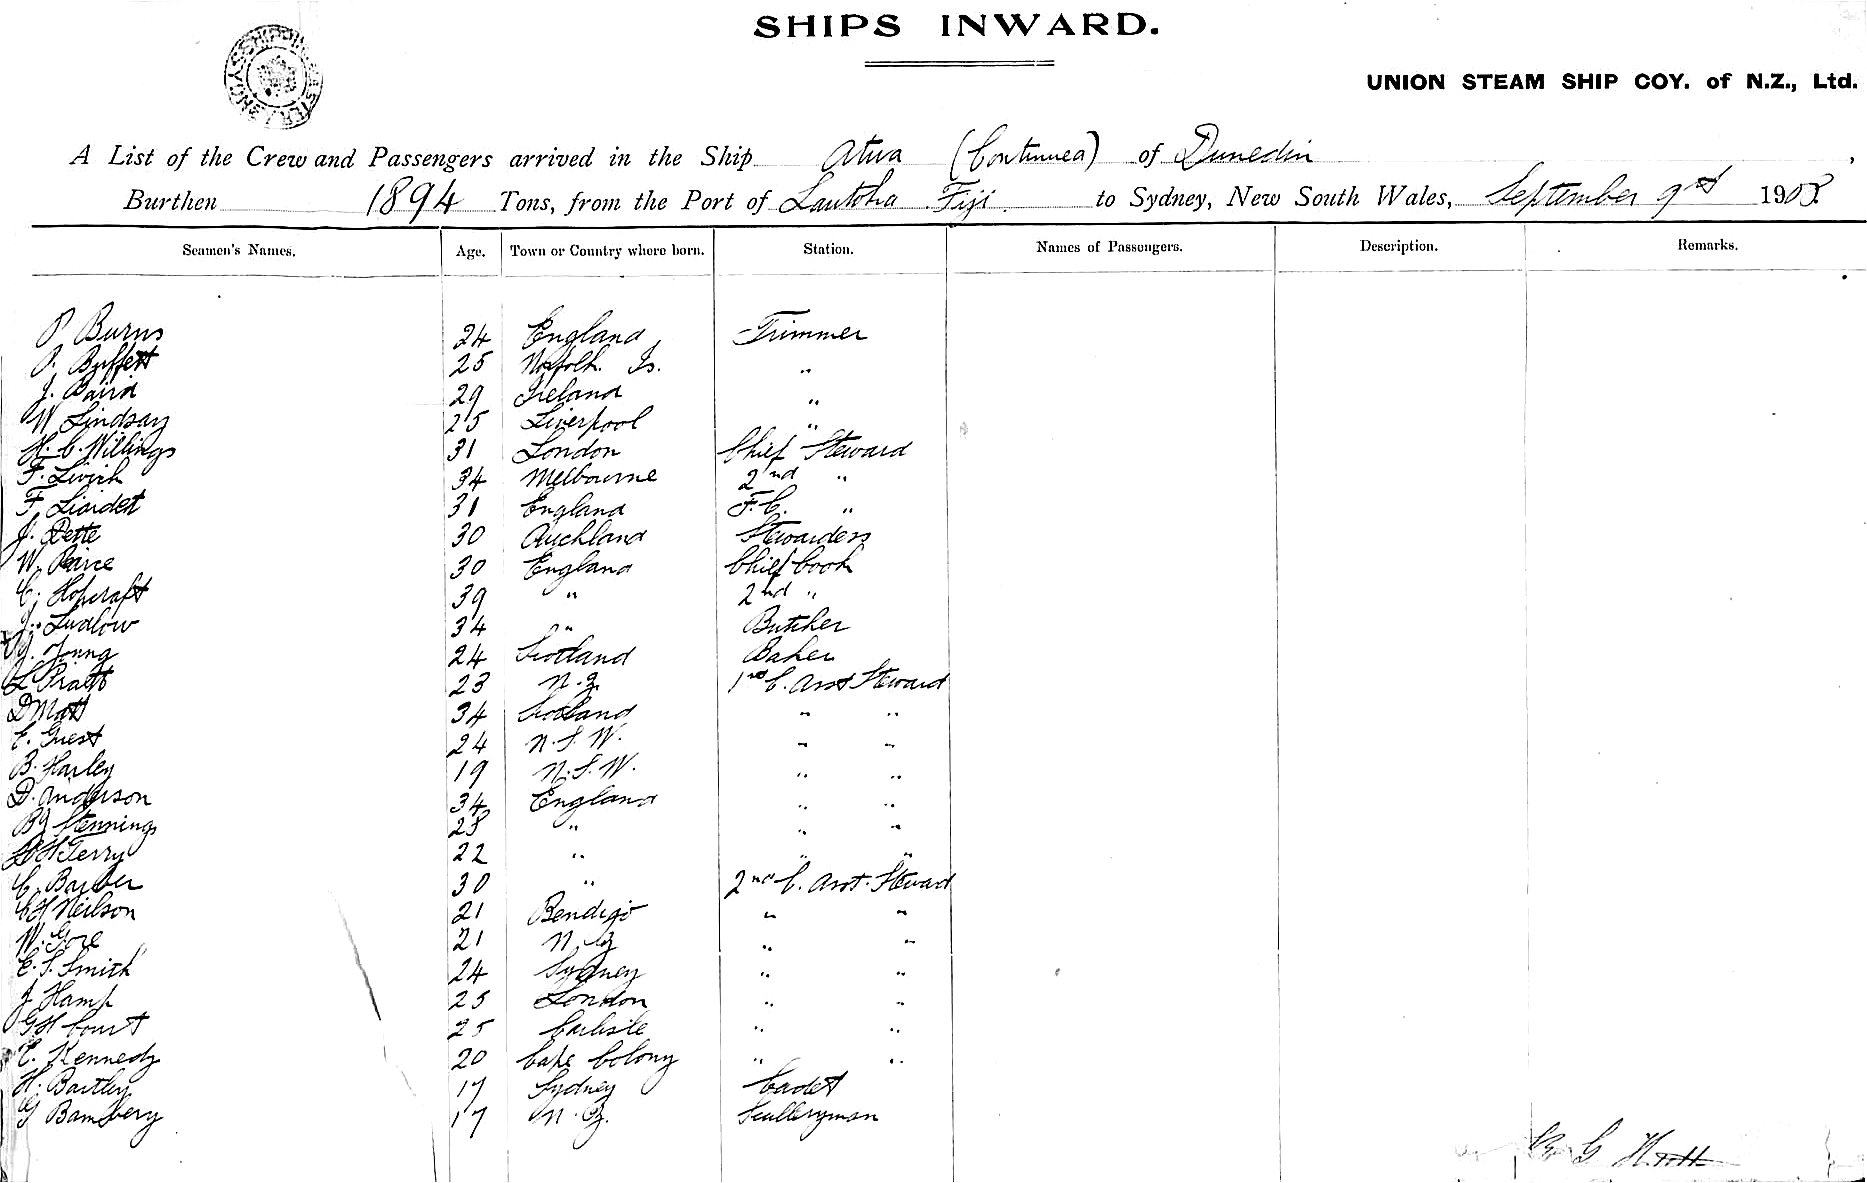 SHIPS INWARD.
UNION STEAM SHIP COY. of N.Z., Ltd.
A List of the Crew and Passengers arrived in the Ship Atua (Continued) of Dunedin,
Burthen 1894 Tons, from the Port of Lautoka Fiji. to Sydney, New South Wales, September 9th 1908
Seamen's Names. Age. Town or Country where born. Station. Names of Passengers. Description. Remarks.
P Burns 24 England Trimmer
P. Buffett 25 Norfolk Is. "
J. Baird 29 Ireland "
W Lindsay 25 Liverpool "
H. C. Willings 31 London Chief Steward
F. 34 Melbourne 2nd "
F. Liardet 31 England F.C. "
J. Pette 30 Auckland Stewardess
W. Peirce 30 England Chief Cook
C. Hopcraft 39 " 2nd "
J. Ludlow 34 " Butcher
J. Young 24 Scotland Baker
L Pratt 23 N.Z. 1st C. Asst Steward
D Mott 34 Scotland " "
E. Guest 24 N.S.W. " "
B. Harley 19 N.S.W. " "
D. Anderson 34 England " "
BJ Stennings 23 " " "
H Terry 22 " " "
C. Barber 30 " 2nd C. Asst. Steward
CH Neilson 21 Bendigo " "
W. Gore 21 N.Z " "
E. S. Smith 24 Sydney " "
J Hamp 25 London " "
GH Court 25 Carlisle " "
E. Kennedy 20 Cape Colony " "
H. Bartley 17 Sydney Cadet
G Bamsbery 17 N.Z. Sculleryman